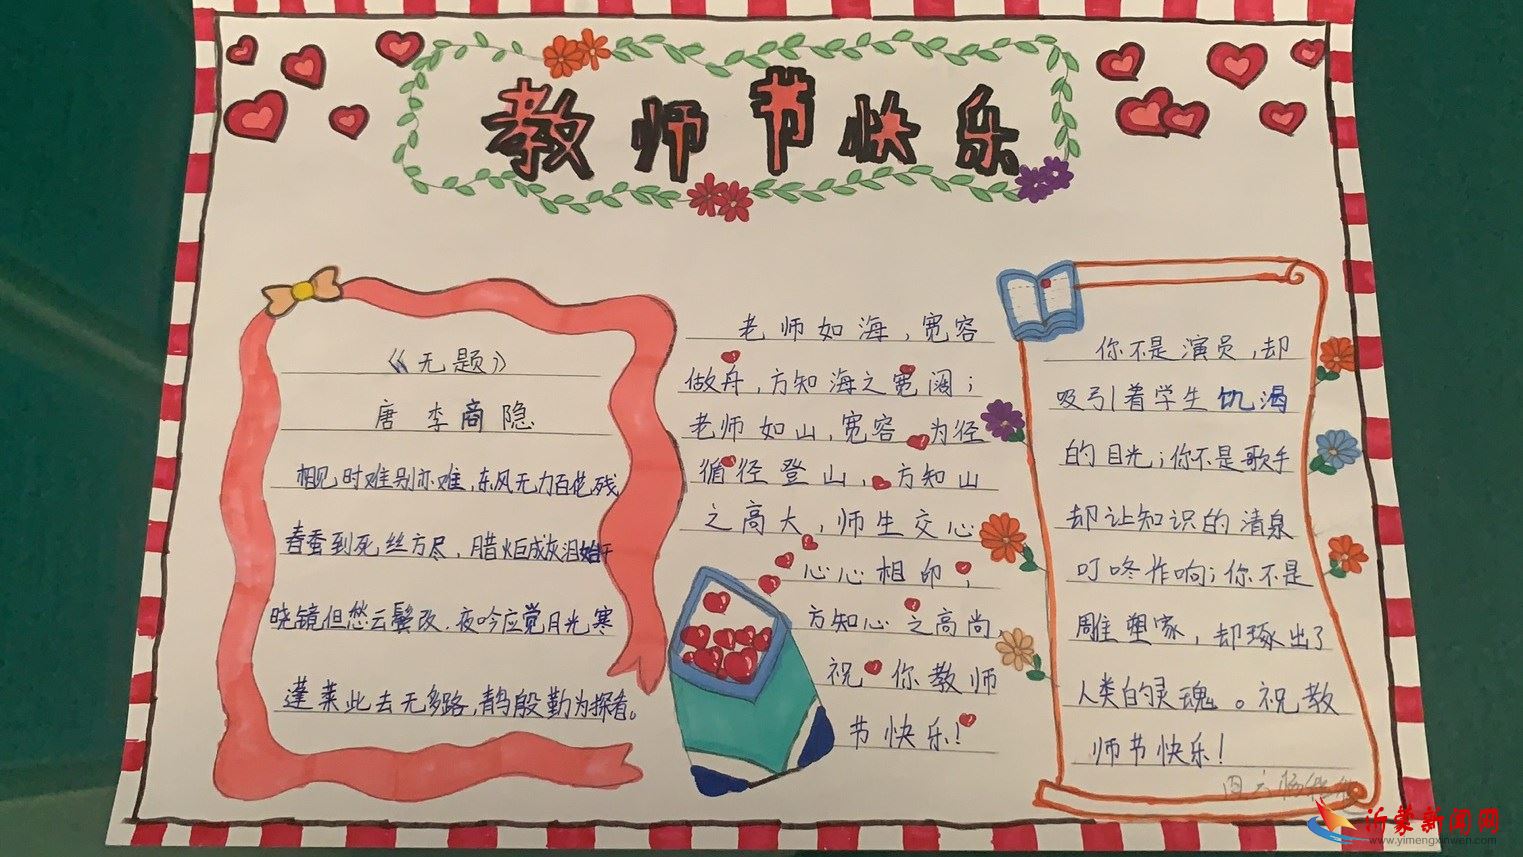 教师节快乐
《无题》
唐 李商隐
相见时难别亦难，东风无力百花残
春蚕到死丝方尽，腊炬成灰泪始干
晓镜但愁云鬓改，夜吟应觉月光寒
蓬莱此去无多路，青鸟殷勤为探看。
老师如海，宽容
做舟，方知海之宽阔；
老师如山，宽容为径
循径登山，方知山
之高大，师生交心
心心相印，
方知心之高尚，
祝你教师
节快乐！
你不是演员，却
吸引着学生饥渴
的目光；你不是歌手
却让知识的清泉
叮咚作响；你不是
雕塑家，却琢出了
人类的灵魂。祝教
师节快乐！
沂蒙新闻网
www.yimengxinwen.com